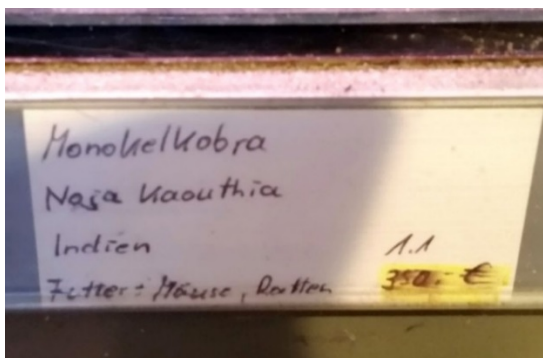 Monokelkobra
Naja Kaouthia
Indien 1.1
Futter: Mäuse, Ratten 350,- €